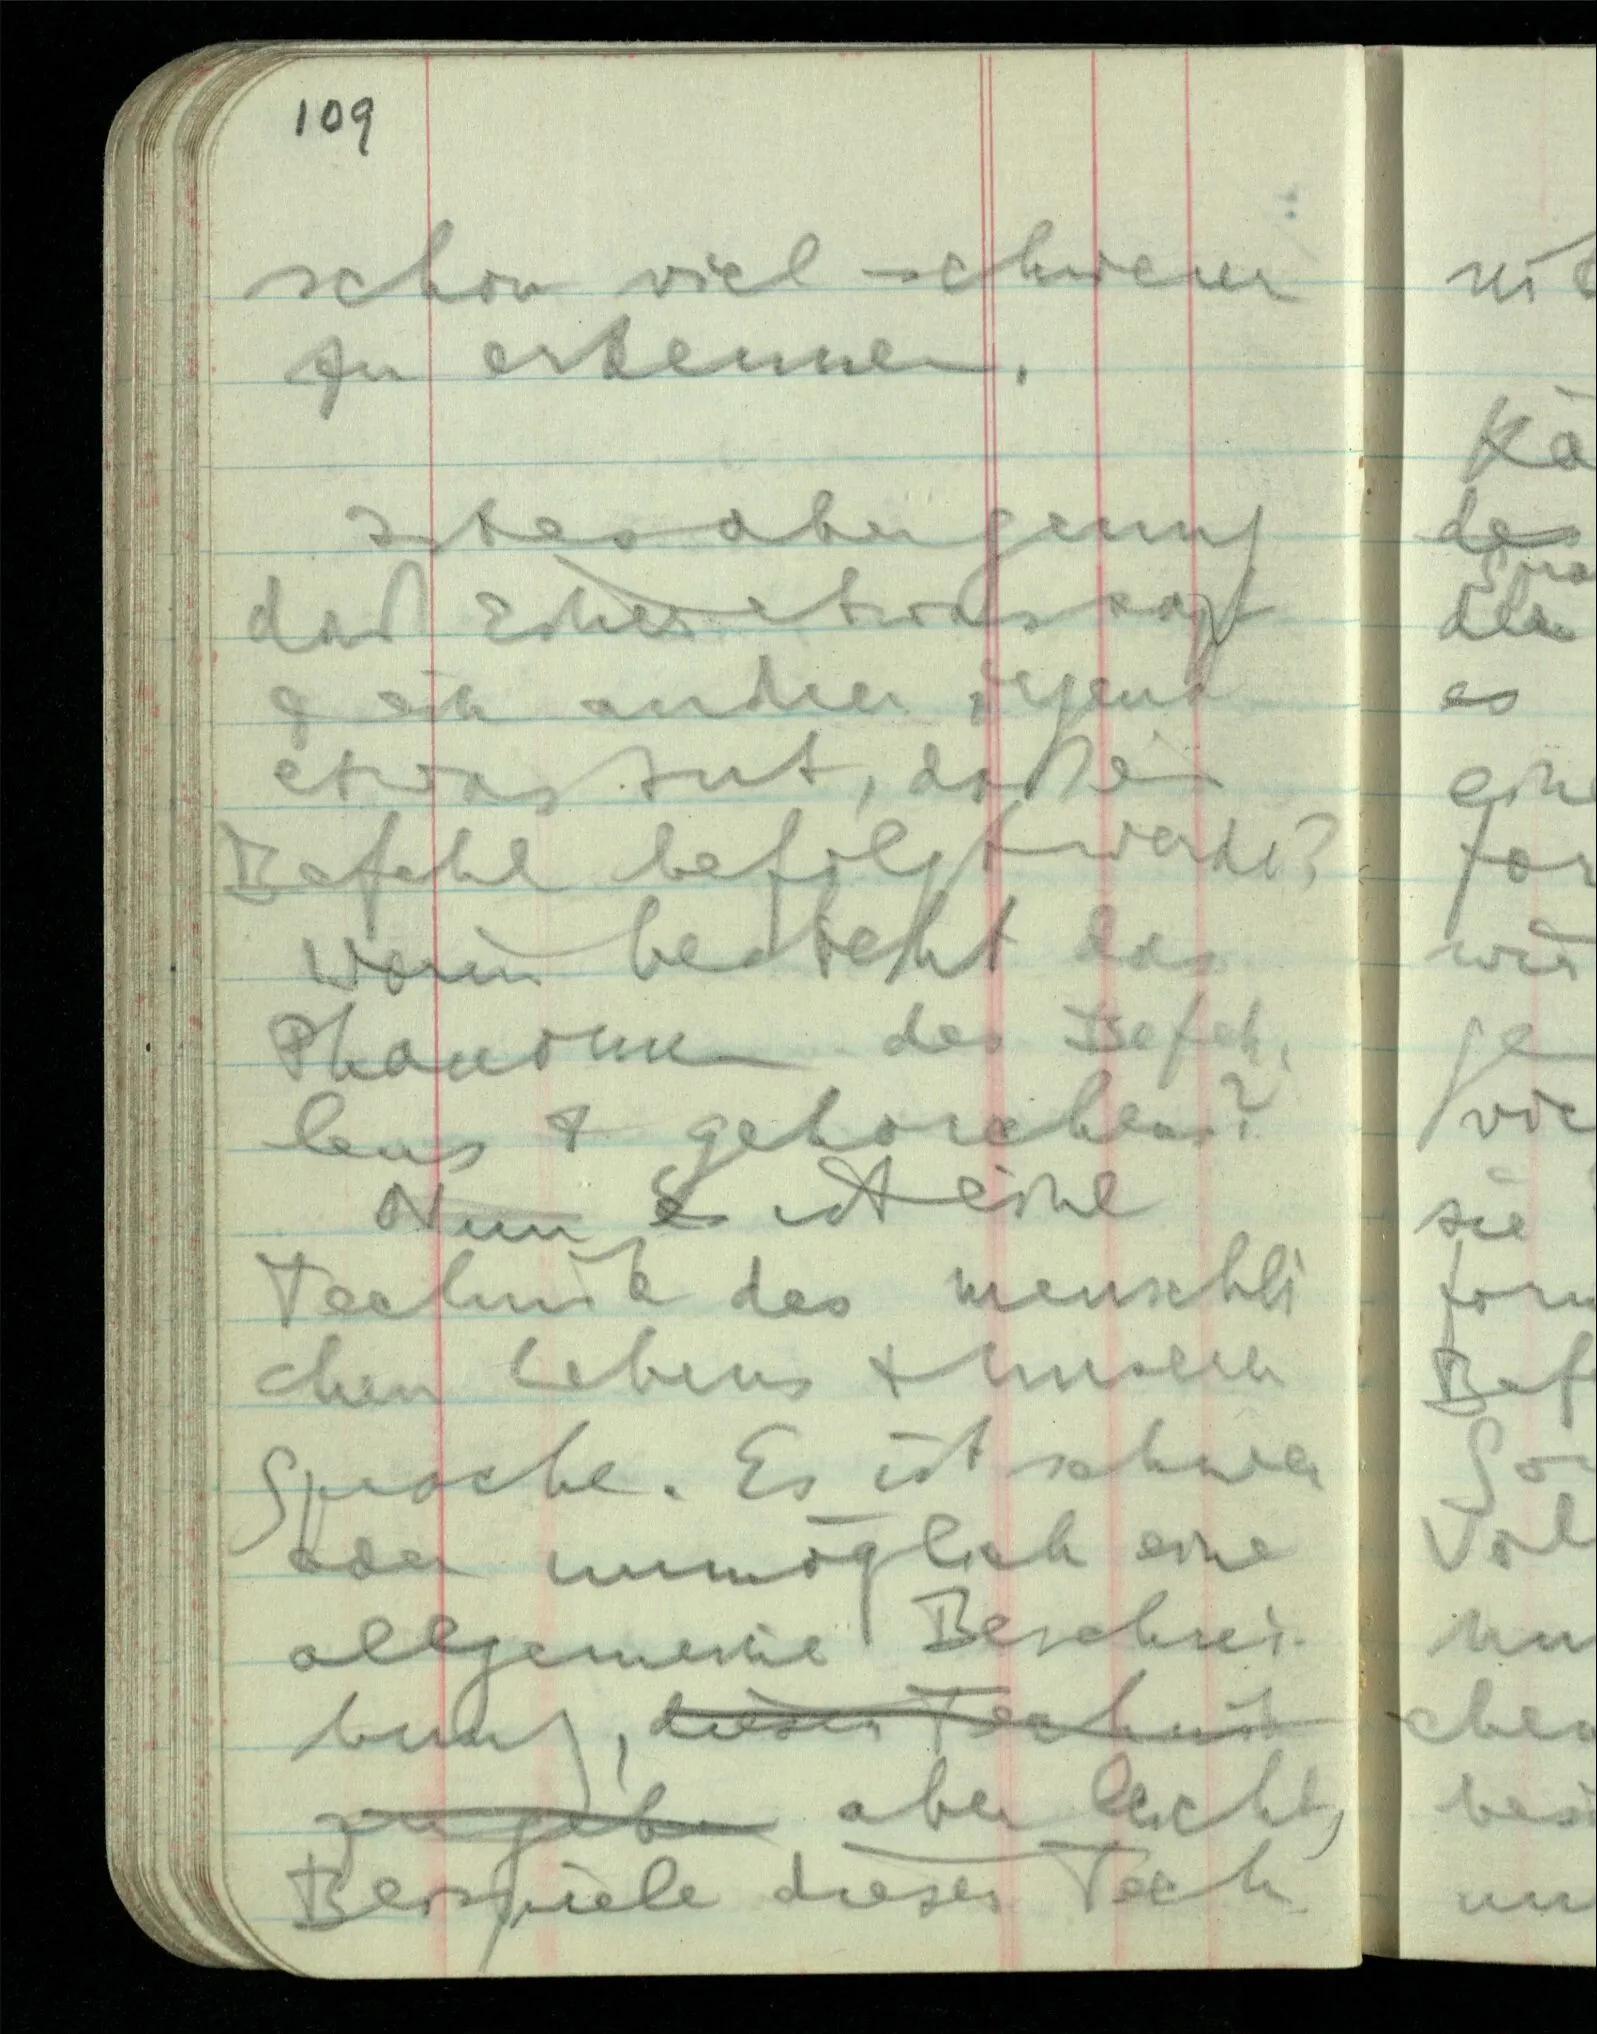 109
schon viel schwerer
zu erkennen.
Ist es aber genug
daß Einer etwas sagt
& ein andrer irgend
etwas tut, daß ein
Befehl befolgt werde?
Worin besteht das
Phänomen des Befeh¬
lens & gehorchens?
Nun Es ist eine
Technik des menschli
chen Lebens & unserer
Sprache. Es ist schwer
oder unmöglich eine
allgemeine Beschrei-
bung, dieser Technik
zu geben aber leicht,
Beispiele dieser Tech